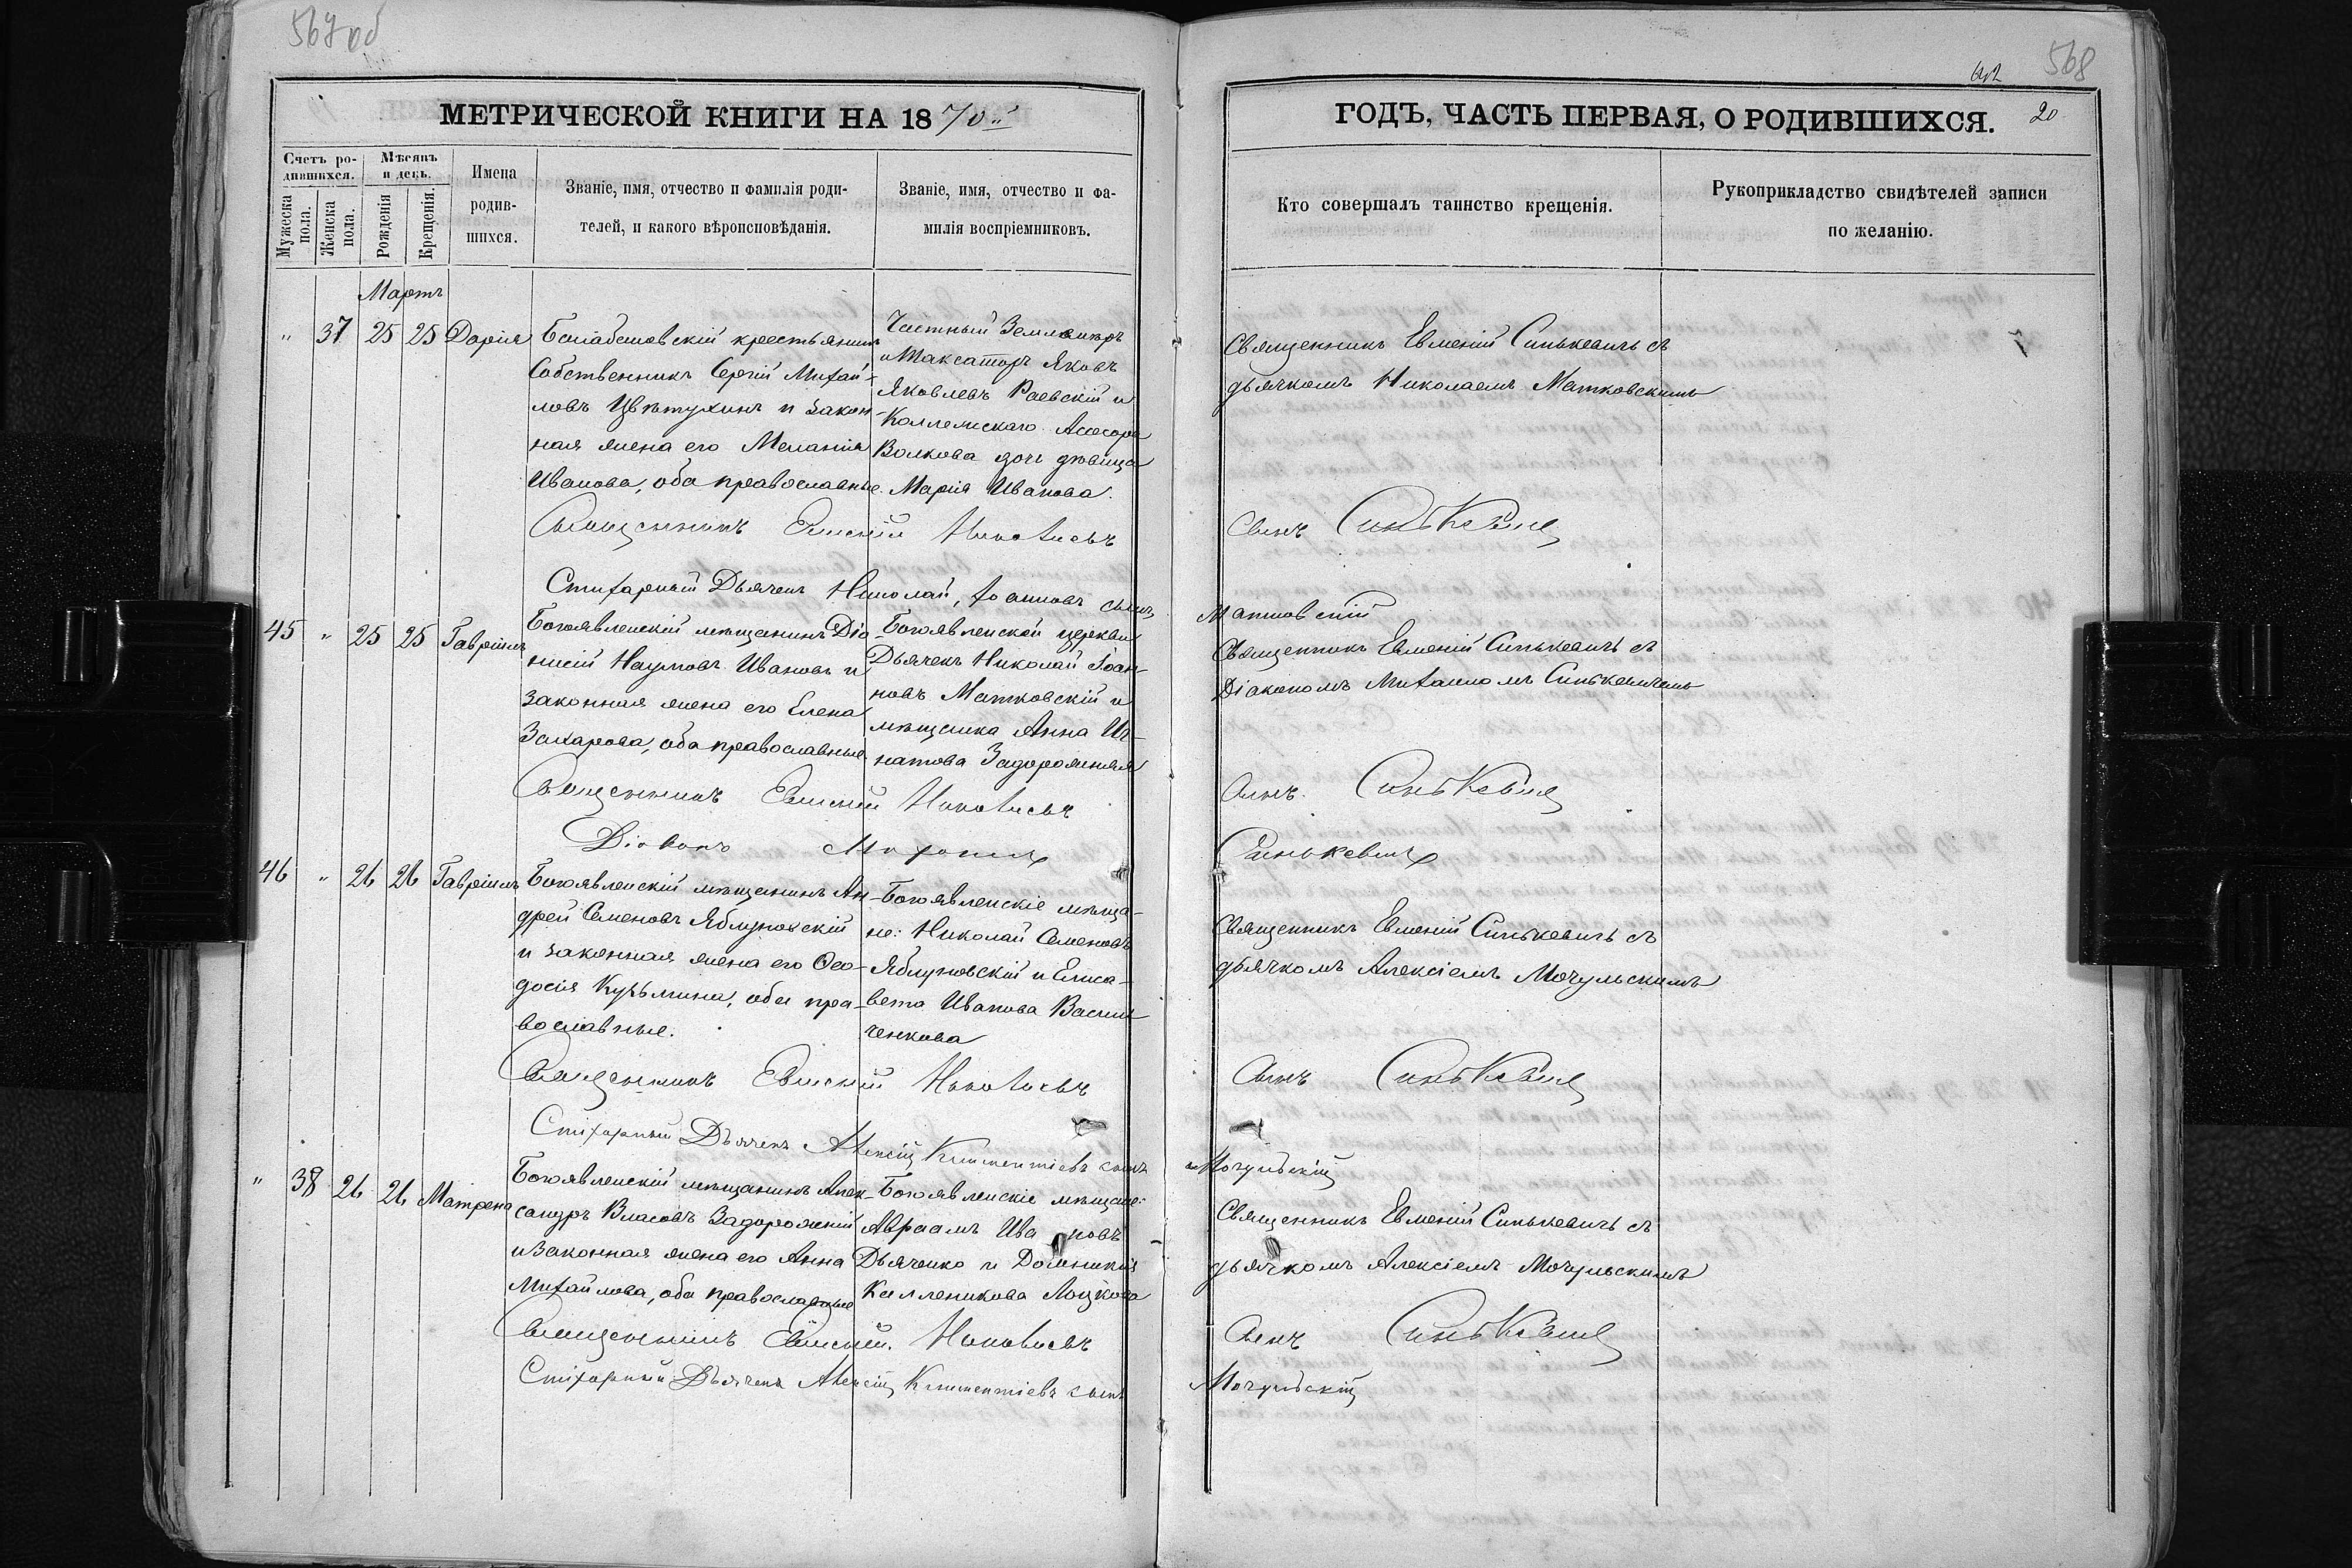 567 об
МЕТРИЧЕСКОЙ КНИГИ НА 1870й
Счетъ ро-
дившихся.
Мужеска
пола.
Женска
пола.
Мѣсяцъ
и день.
Рожденія
Крещенія.
Имена
родив-
шихся.
Званіе, имя, отчество и фамилія роди-
телей, и какого вѣроисповѣданія.
Званіе, имя, отчество и фа-
милія воспріемниковъ.
Мартъ
" 37 25 25 Дарія
крестьянинъ
Собственникъ Сергій Михай-
ловъ Цвѣтухинъ и закон-
ная жена его Меланія
Иванова, оба православные.
Частный Землемѣръ
и Таксаторъ Яковъ
Яковлевъ Раевскій и
Коллежскаго Асесора
Волкова дочь дѣвица
Марія Иванова.
Священникъ Евменій
Стихарный Дьячекъ Николай, Іоанновъ сынъ
45 " 25 25 Гавріилъ
Богоявленскій мѣщанинъ Діо-
нисій Наумовъ Ивановъ и
законная жена его Елена
Захарова, оба православные
Богоявленской церкви
Дьячекъ Николай Іоан-
новъ Матковскій и
мѣщанка Анна Иг-
натова Задорожняя
Священникъ Евменій
Діаконъ Михаилъ
46 " 26 26 Гавріилъ
Богоявленскій мѣщанинъ Ан-
дрей Семеновъ Яблуновскій
и законная жена его Ѳео-
досія Кузьмина, оба пра-
вославные.
Богоявленскіе мѣща-
не: Николай Семеновъ
Яблуновскій и Елиса-
вета Иванова Васил-
ченкова
Священникъ Евменій
Стихарный Дьячекъ Алексій Климентіевъ сынъ
" 38 26 26 Матрена
Богоявленскій мѣщанинъ Алек-
сандръ Власовъ Задорожній
и законная жена его Анна
Михайлова, оба православные
Богоявленскіе мѣщане:
Авраамъ Ивановъ
Дьяченко и Домникія
Каллиникова Лоцкова
Священникъ Евменій
Стихарный Дьячекъ Алексій Климентіевъ сынъ
568
20
ГОДЪ, ЧАСТЬ ПЕРВАЯ, О РОДИВШИХСЯ.
Кто совершалъ таинство крещенія.
Рукоприкладство свидѣтелей записи
по желанію.
Священникъ Евменій Синькевичъ съ
дьячкомъ Николаемъ Матковскимъ
сынъ Синькевичъ
Матковскій
Священникъ Евменій Синькевичъ съ
Діакономъ Михаиломъ Синькевичемъ
сынъ Синькевичъ
Синькевичъ
Священникъ Евменій Синькевичъ съ
дьячкомъ Алексіемъ Мочульскимъ
сынъ Синькевичъ
Мочульскій
Священникъ Евменій Синькевичъ съ
дьячкомъ Алексіемъ Мочульскимъ
сынъ Синькевичъ
Мочульскій